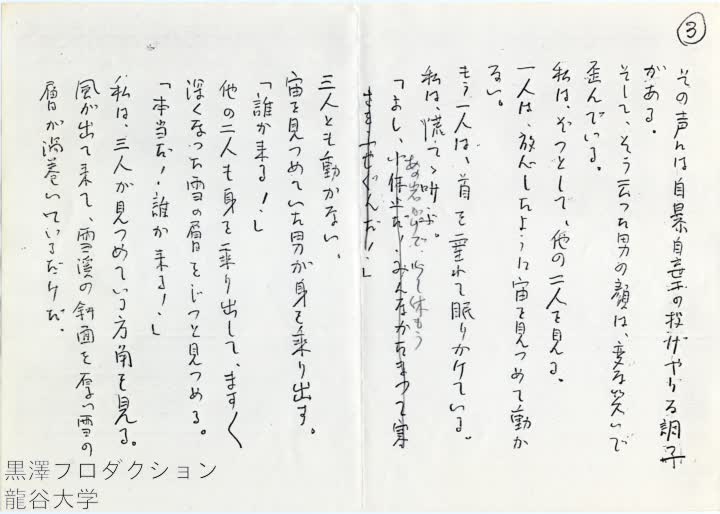 ③
その声には自暴自棄の投げやりな調子
がある。
そして、そう云った男の顔は、変な笑いで
歪んでいる。
私は、ぞっとして、他の二人を見る。
一人は、放心したように宙を見つめて動か
ない。
もう一人は、首を垂れて眠りかけている。
私は、慌てゝ叫ぶ。
あの岩かげで、少し休もう
「よし、小休止だ！みんなかたまって寒
さをふせぐんだ！」
三人とも動かない。
宙を見つめていた男が身を乗り出す。
「誰か来る！」
他の二人も身を乗り出して、ます〱
深くなった雪の層をじっと見つめる。
「本当だ！誰か来る！」
私は、三人が見つめている方角を見る。
風が出て来て、雪渓の斜面を厚い雪の
層が渦巻いているだけだ。
黒澤プロダクション
龍谷大学